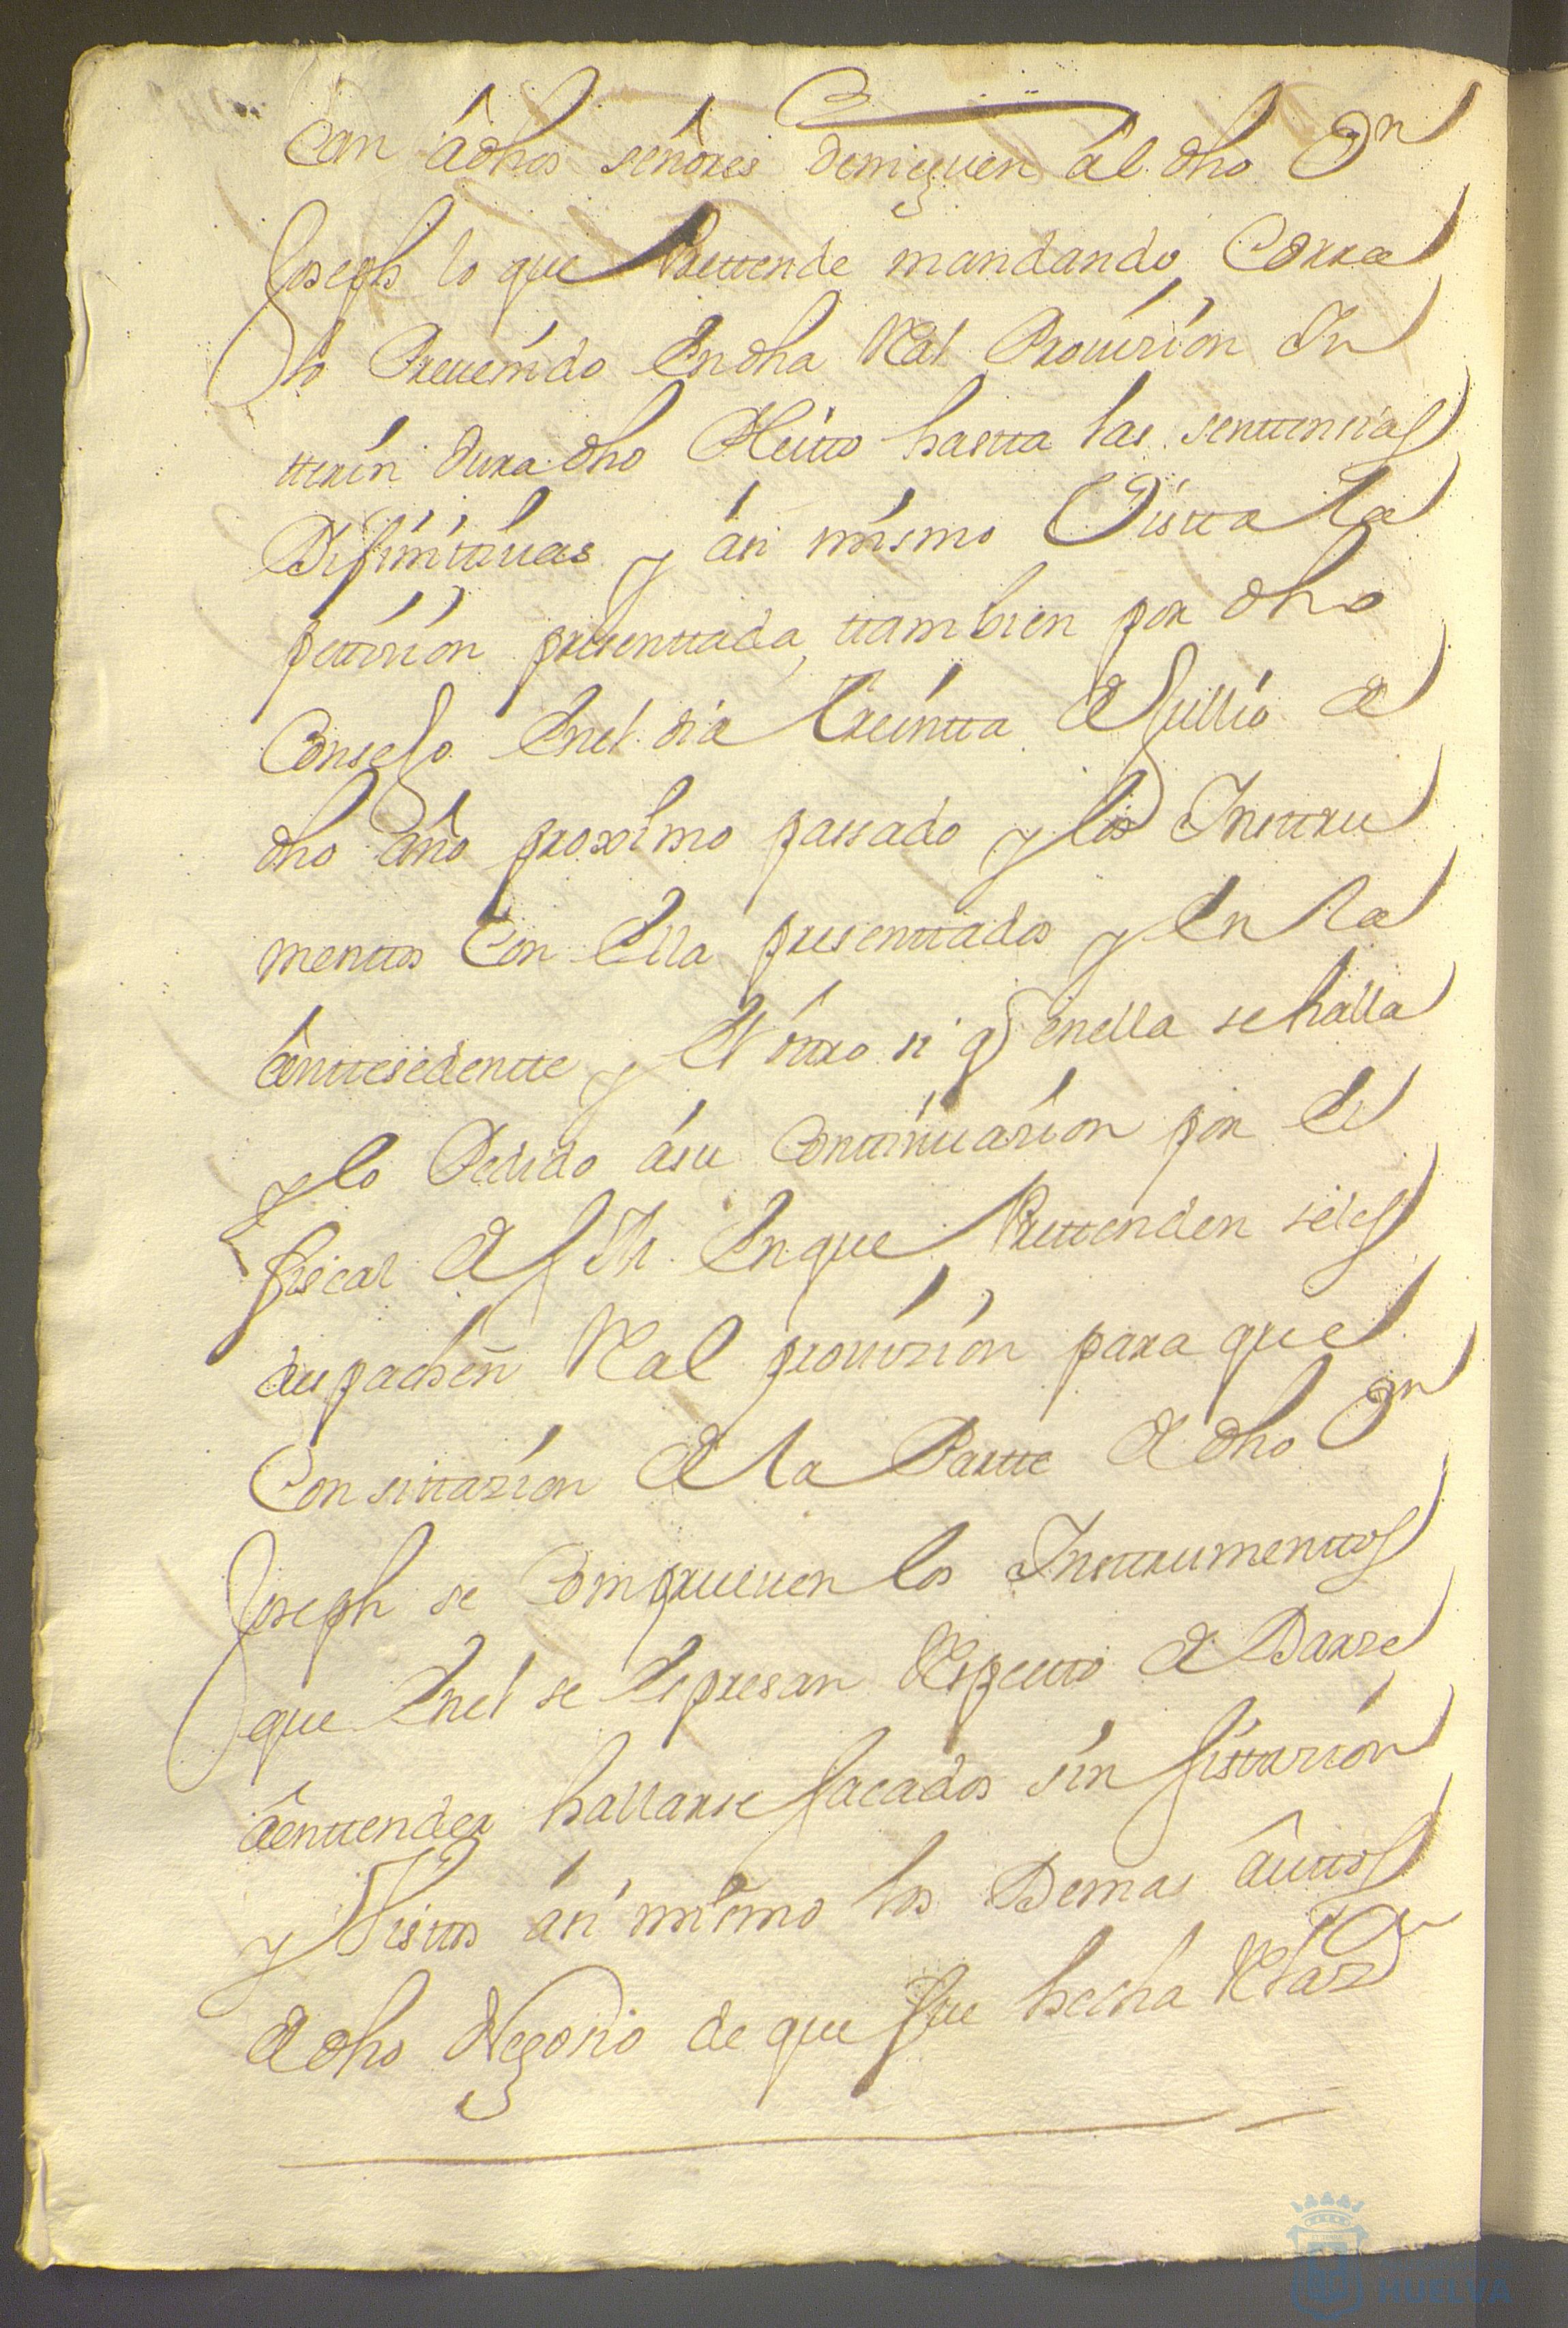 Can âdhos señores denieguen âl dho Dn
Joseph lo que Prettende mandando Corra
lo Preuenido En dha Ral Prouision In
tterin dura dho Pleitto hastta las senttensias
Difinitiuas y âsi mismo Vistta la
pettision presenttada ttambien por dho
Consejo En el dia treintta de Jullio de
dho Año proximo passado y los Insttru
menttos Con Ella presenttados y En la
Anttesedentte y El ôttro si q en ella se halla
y lo Pedido â su Conttinuasion por El
fiscal de S M En que Prettenden se les
despachen Real prouision para que
Con sittazion de la Partte de dho Dn
Joseph se Comprueuen los Insttrumenttos
que En el se Espresan Respectto de Darse
â enttender hallarse sacados sin sittasion
y Visttos âsi mismo los Demas âuttos
de dho Negosio de que fue hecha Relazon
HUELVA